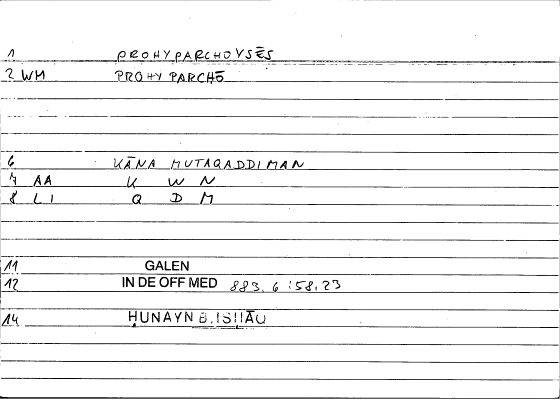 1 PROHYPARCHOYSĒS
2 WM PROHYPARCHŌ
6 KĀNA MUTAQADDIMAN
7 AA K W N
8 LI Q D M
11 GALEN
12 IN DE OFF MED 883. 6 : 58.23
14 ḤUNAYN B. ISḤĀQ